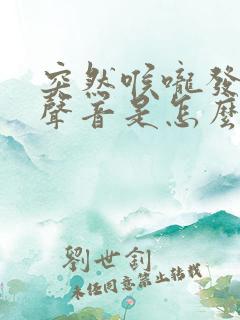 突然喉嚨發
聲音是怎麼
劉世釗
未經同意禁止轉載